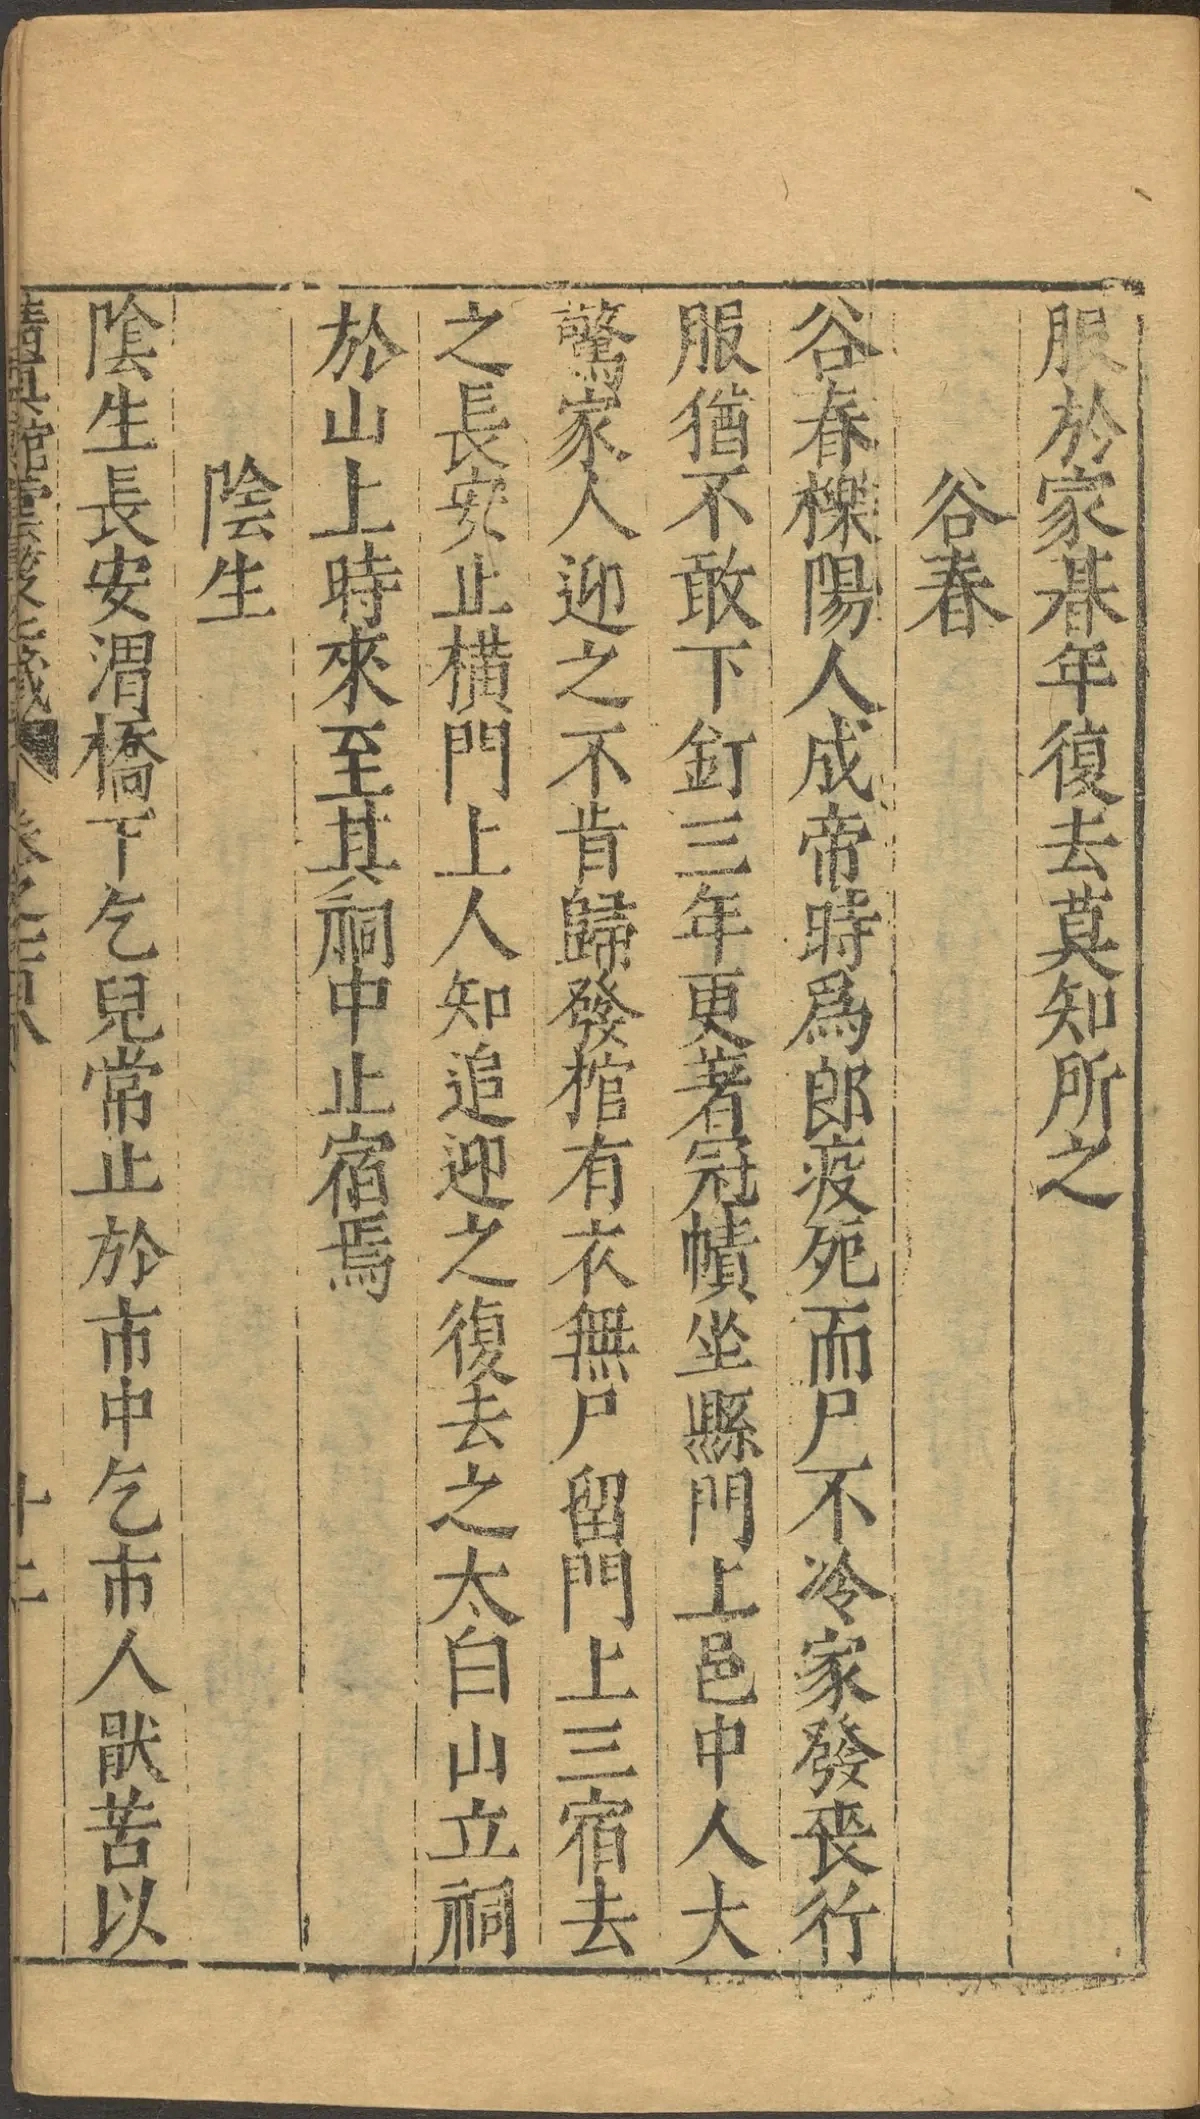 服於家朞年復去莫知所之
谷春
谷春櫟陽人成帝時爲郎疫死而尸不冷家發喪行
服猶不敢下釘三年更著冠幘坐縣門上邑中人大
驚家人迎之不肯歸發棺有衣無尸留門上三宿去
之長安止橫門上人知追迎之復去之太白山立祠
於山上時來至其祠中止宿焉
陰生
陰生長安渭橋下乞兒常止於市中乞市人厭苦以
十二